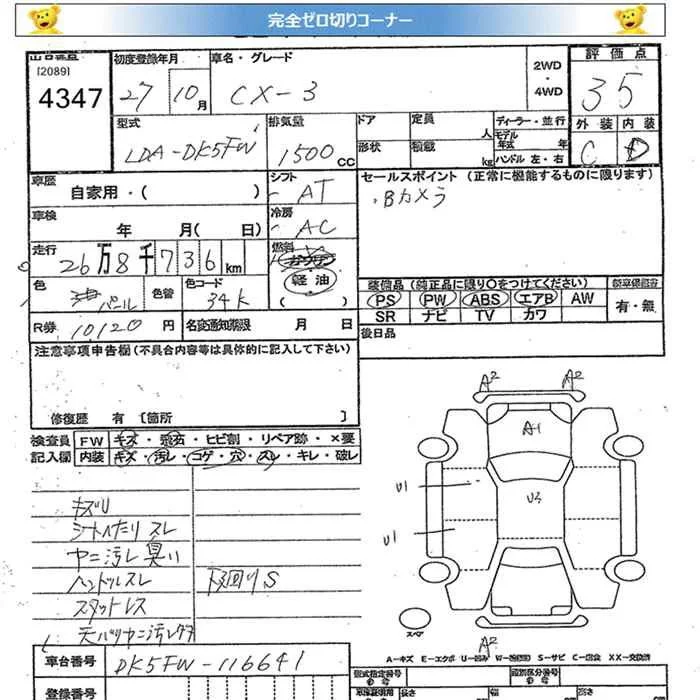 完全ゼロ切りコーナー
出品番号 初度登録年月 車名・グレード 2WD・4WD 評価点
[2089]
4347 27 10月 CX-3 35
型式 排気量 ドア 定員 人 ディーラー・並行 外装 内装
LDA-DK5FW 1500CC 形状 積載 kg モデル年式 年 C D
ハンドル 左・右
車歴 自家用・( ) シフト AT セールスポイント (正常に機能するものに限ります)
・Bカメラ
車検 年 月( 日) 冷房 AC
走行 26万8千736km 燃料 ガソリン
軽油
( )
色 パール 色替 色コード 34K
装備品 (純正品に限り〇をつけてください)
PS PW ABS エアB AW 有・無
SR ナビ TV カワ
R券 10120円 名変通知期限 月 日 後日品
注意事項申告欄(不具合内容等は具体的に記入して下さい)
修復歴 有 〔箇所 〕
検査員 FW キズ・飛石・ヒビ割・リペア跡・×要
記入欄 内装 キズ・汚レ・コゲ・穴・スレ・キレ・破レ
A2 A2
A1
U1 U3
U1
キズU
シートヘたりスレ
ヤニ汚レ臭い
ハンドルスレ 下回りS
スペア
A2
A-キズ E-エクボ U-凹み S-サビ C-腐食 XX-交換済
車台番号 DK5FW-116641
型式指定番号 類別区分番号
登録番号 長さ 幅 高さ